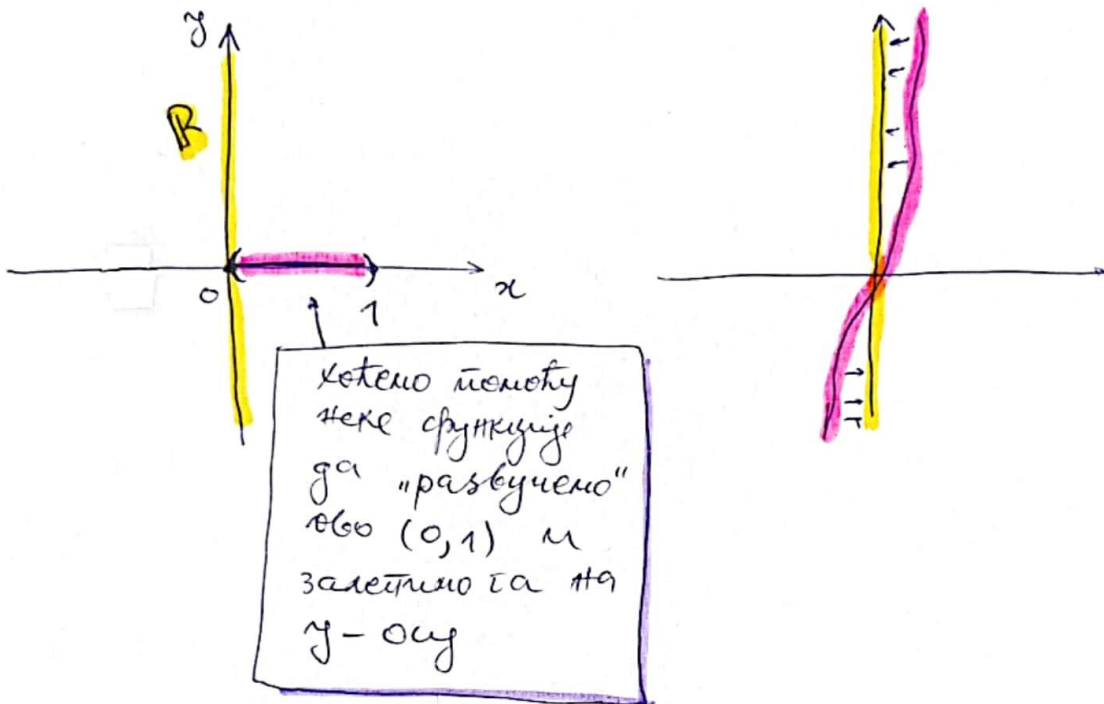 y
ℝ
0
1
x
хоћемо помоћу
неке функције
да „развучемо"
ово (0,1) и
залепимо га на
y-осу